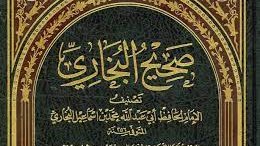 صَحِيحُ البُخَارِيِّ
تصنيف
الإمام الحافظ أبي عبد الله محمد بن إسماعيل البخاري
المتوفى سنة